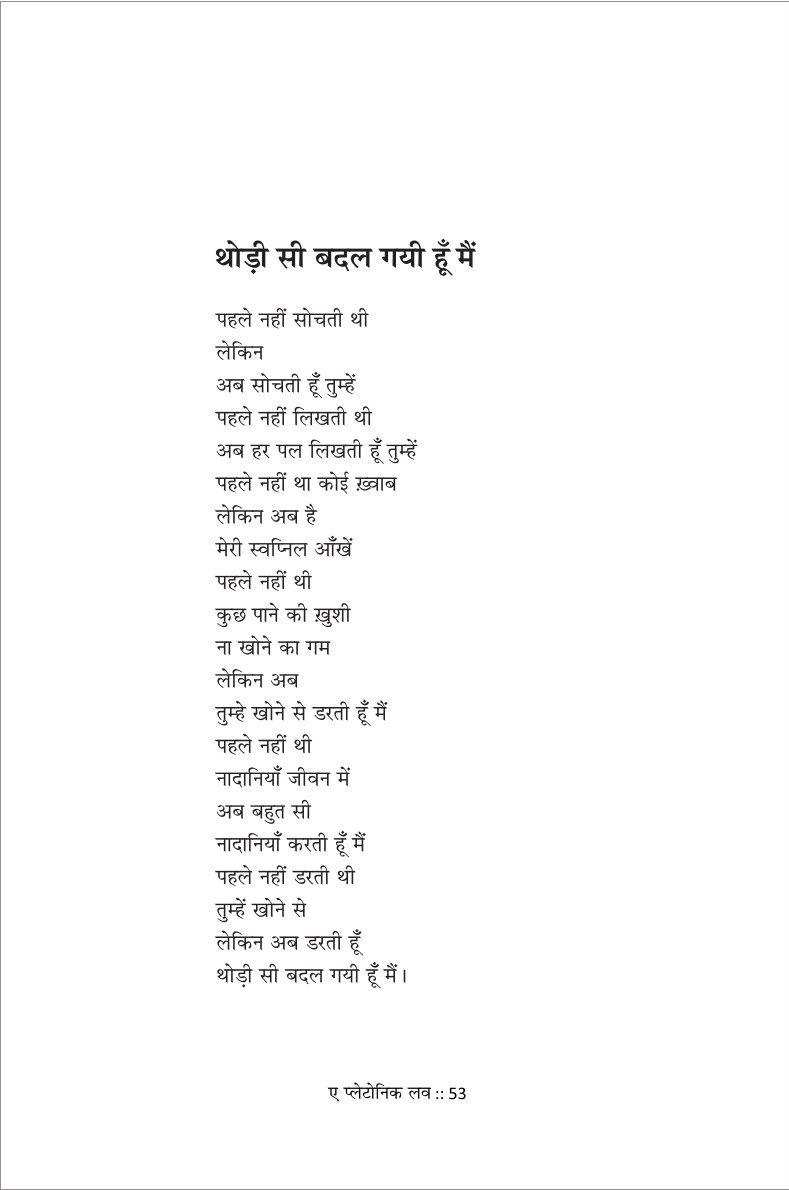 थोड़ी सी बदल गयी हूँ मैं
पहले नहीं सोचती थी
लेकिन
अब सोचती हूँ तुम्हें
पहले नहीं लिखती थी
अब हर पल लिखती हूँ तुम्हें
पहले नहीं था कोई ख़्वाब
लेकिन अब है
मेरी स्वप्निल आँखें
पहले नहीं थी
कुछ पाने की ख़ुशी
ना खोने का गम
लेकिन अब
तुम्हे खोने से डरती हूँ मैं
पहले नहीं थी
नादानियाँ जीवन में
अब बहुत सी
नादानियाँ करती हूँ मैं
पहले नहीं डरती थी
तुम्हें खोने से
लेकिन अब डरती हूँ
थोड़ी सी बदल गयी हूँ मैं।
ए प्लेटोनिक लव :: 53